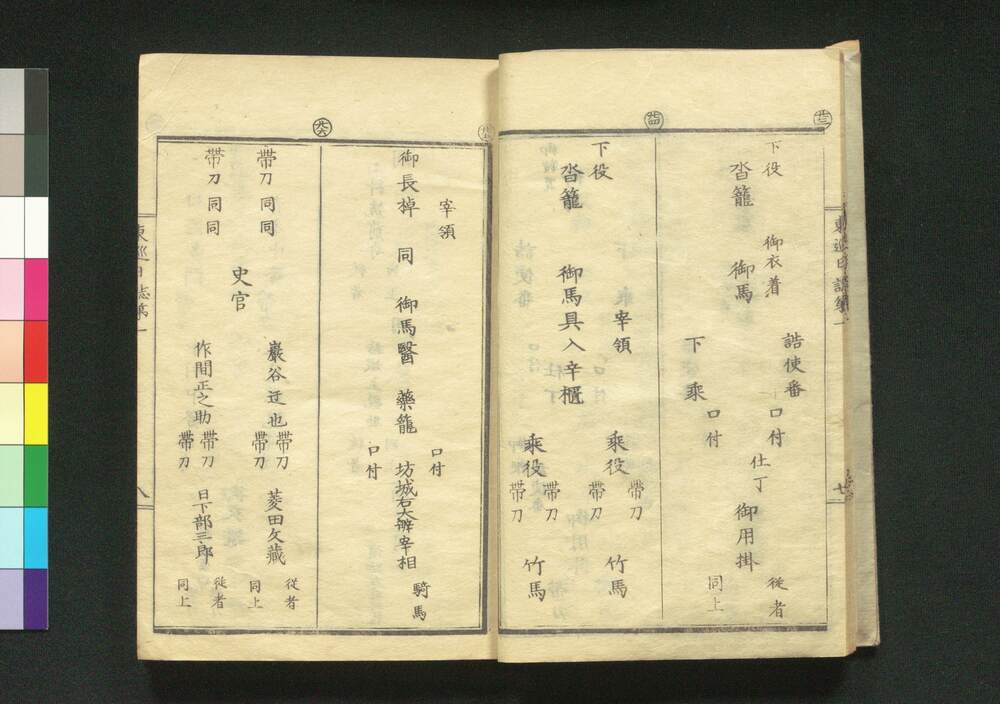 下役 御衣着 誥使番 口付 従者
沓籠 御馬 仕丁 御用掛 同上
下乘 口付
下役 宰領 乘役 帶刀 竹馬
沓籠 御馬具入辛櫃 帶刀
乘役 帶刀 帶刀 竹馬
宰領 口付 騎馬
御長棹 同 御馬醫 藥籠 坊城右大辨宰相
口付
帶刀 同 同 巖谷迂也 帶刀 帶刀 菱田文藏 従者 同上
史官
帶刀 同 同 作間正之助 帶刀 帶刀 日下部三郎 従者 同上
東巡日誌第一
東巡日誌第一 八